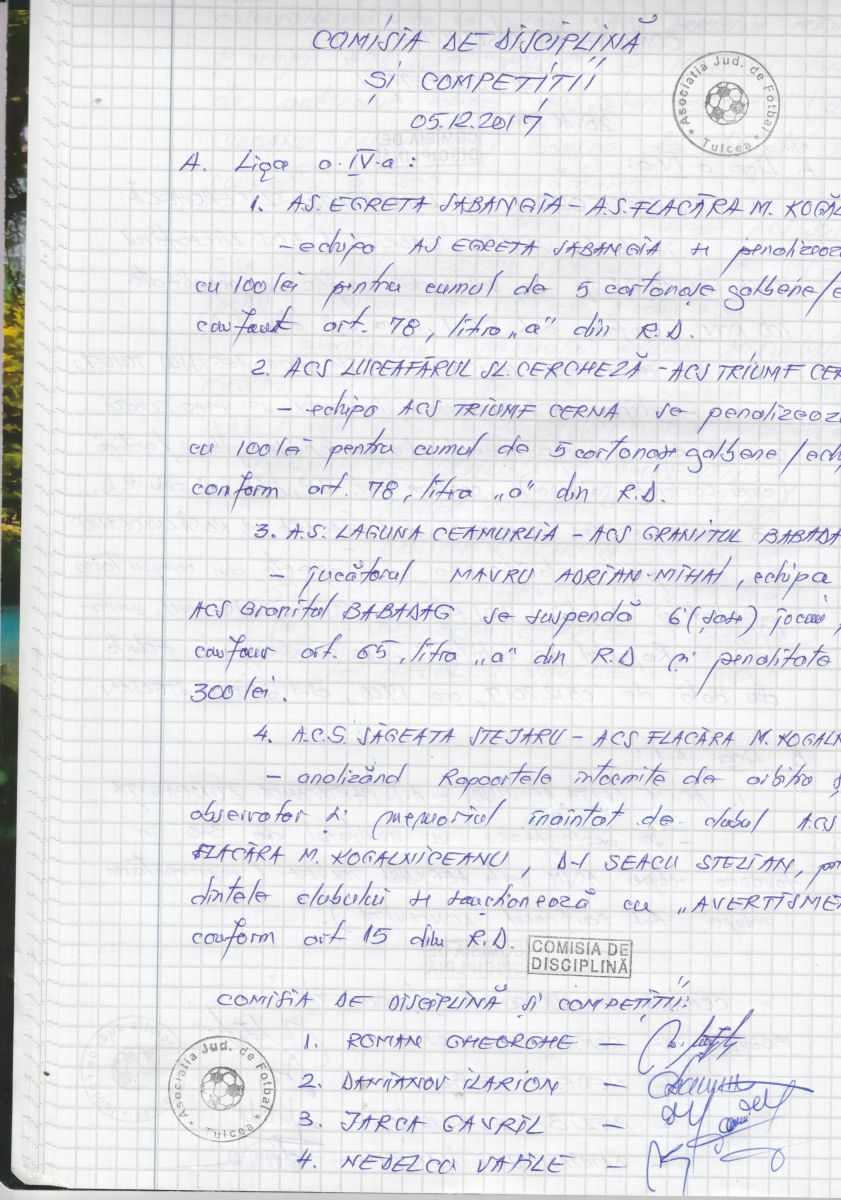 COMISIA DE DISCIPLINĂ
ȘI COMPETIȚII
05.12.2017
Asociatia Jud. de Fotbal
* Tulcea *
A. Liga a-IV-a:
1. A.S. EGRETA SABANGIA - A.S. FLACĂRA M. KOGĂL
- echipa AS EGRETA SABANGIA se penalizeaz
cu 100 lei pentru cumul de 5 cartonașe galbene/e
conform art. 78, litra „a" din R.D.
2. ACS LUCEAFĂRUL SL. CERCHEZĂ - ACS TRIUMF CER
- echipa ACS TRIUMF CERNA se penalizeaz
cu 100 lei pentru cumul de 5 cartonașe galbene/ech
conform art. 78, litra „a" din R.D.
3. A.S. LAGUNA CEAMURLIA - ACS GRANITUL BABADA
- jucătorul MAVRU ADRIAN-MIHAI, echipa
ACS Granitul BABADAG se suspendă 6 (șase) jocuri,
conform art. 65, litra „a" din R.D și penalitate
300 lei.
4. A.C.S. SĂGEATA STEJARU - ACS FLACĂRA M. KOGALN
- analizând Rapoartele întocmite de arbitru ș
observator și memoriul înaintat de clubul ACS
FLACĂRA M. KOGALNICEANU, D-l SEACU STELIAN, pre
dintele clubului se sancționează cu „AVERTISME
conform art 15 din R.D.
COMISIA DE
DISCIPLINĂ
COMISIA DE DISCIPLINĂ ȘI COMPETIȚII:
1. ROMAN GHEORGHE -
2. DAMIANOV ILARION -
3. JARCA GAVRIL -
4. NEDELCU VASILE -
Asociatia Jud. de Fotbal
* Tulcea *